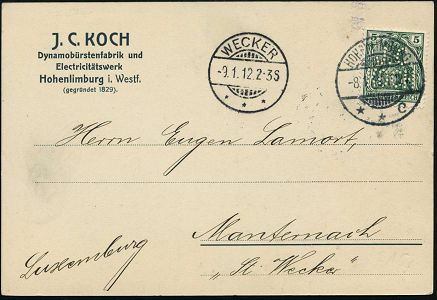 J. C. KOCH
Dynamobürstenfabrik und
Electricitätswerk
Hohenlimburg i. Westf.
(gegründet 1829).
WECKER
-9.1.12.2-3S
5
-8.
c
Herrn Eugen Lamort,
Manternach
"St. Wecker"
Luxemburg